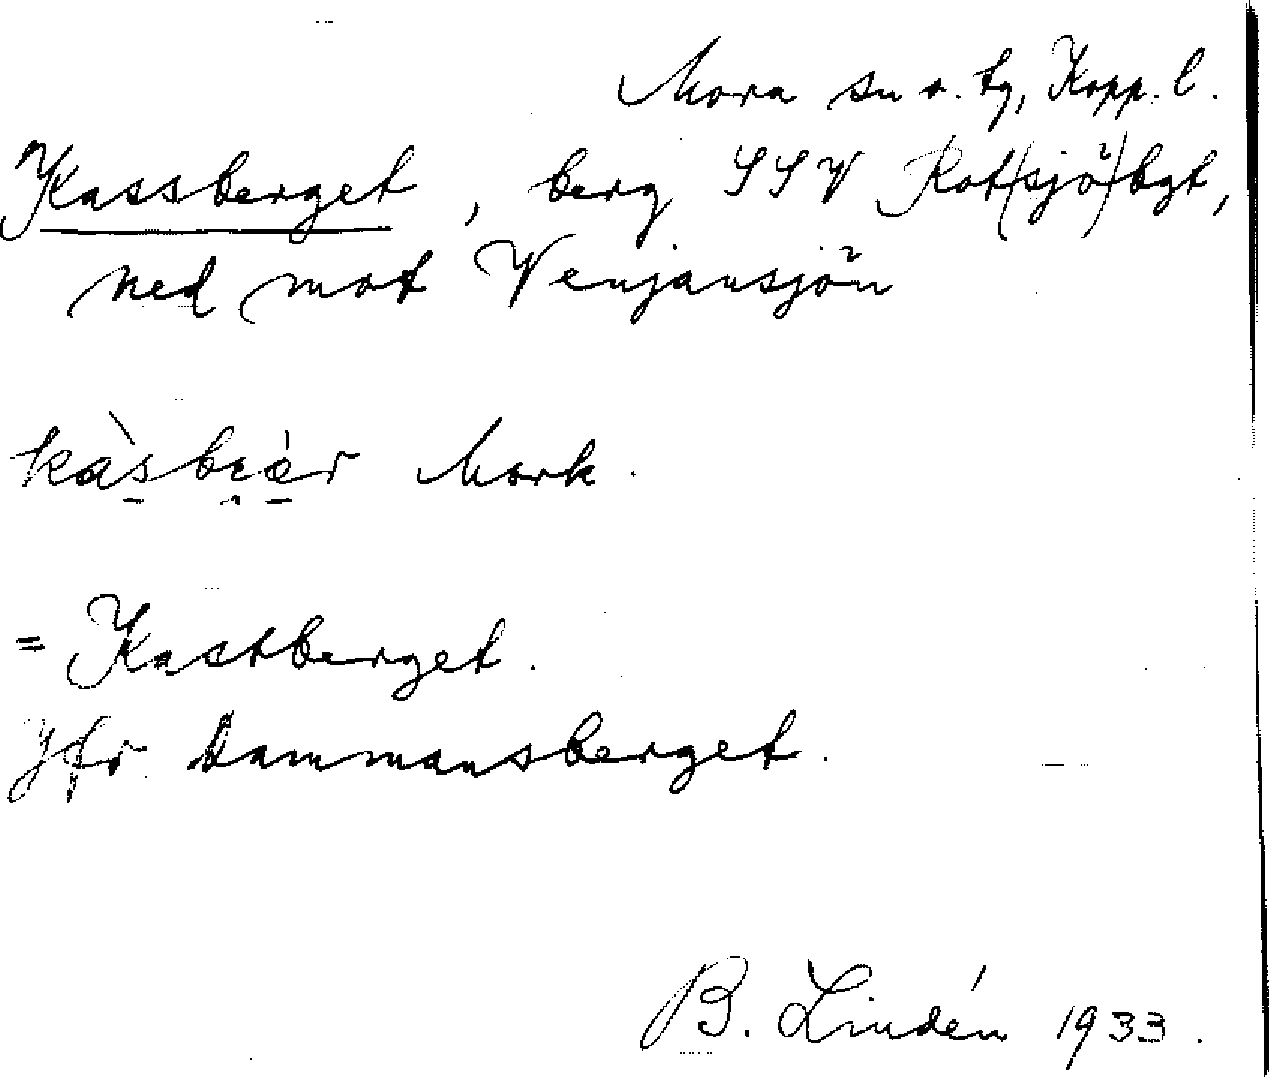 Mora sn o. tg, Kopp. l.
Kassberget, berg SSV Rot(sjö)bgt,
ned mot Venjansjön
Mork.
= Kastberget.
Jfr Dammansberget.
B. Lindén 1933.